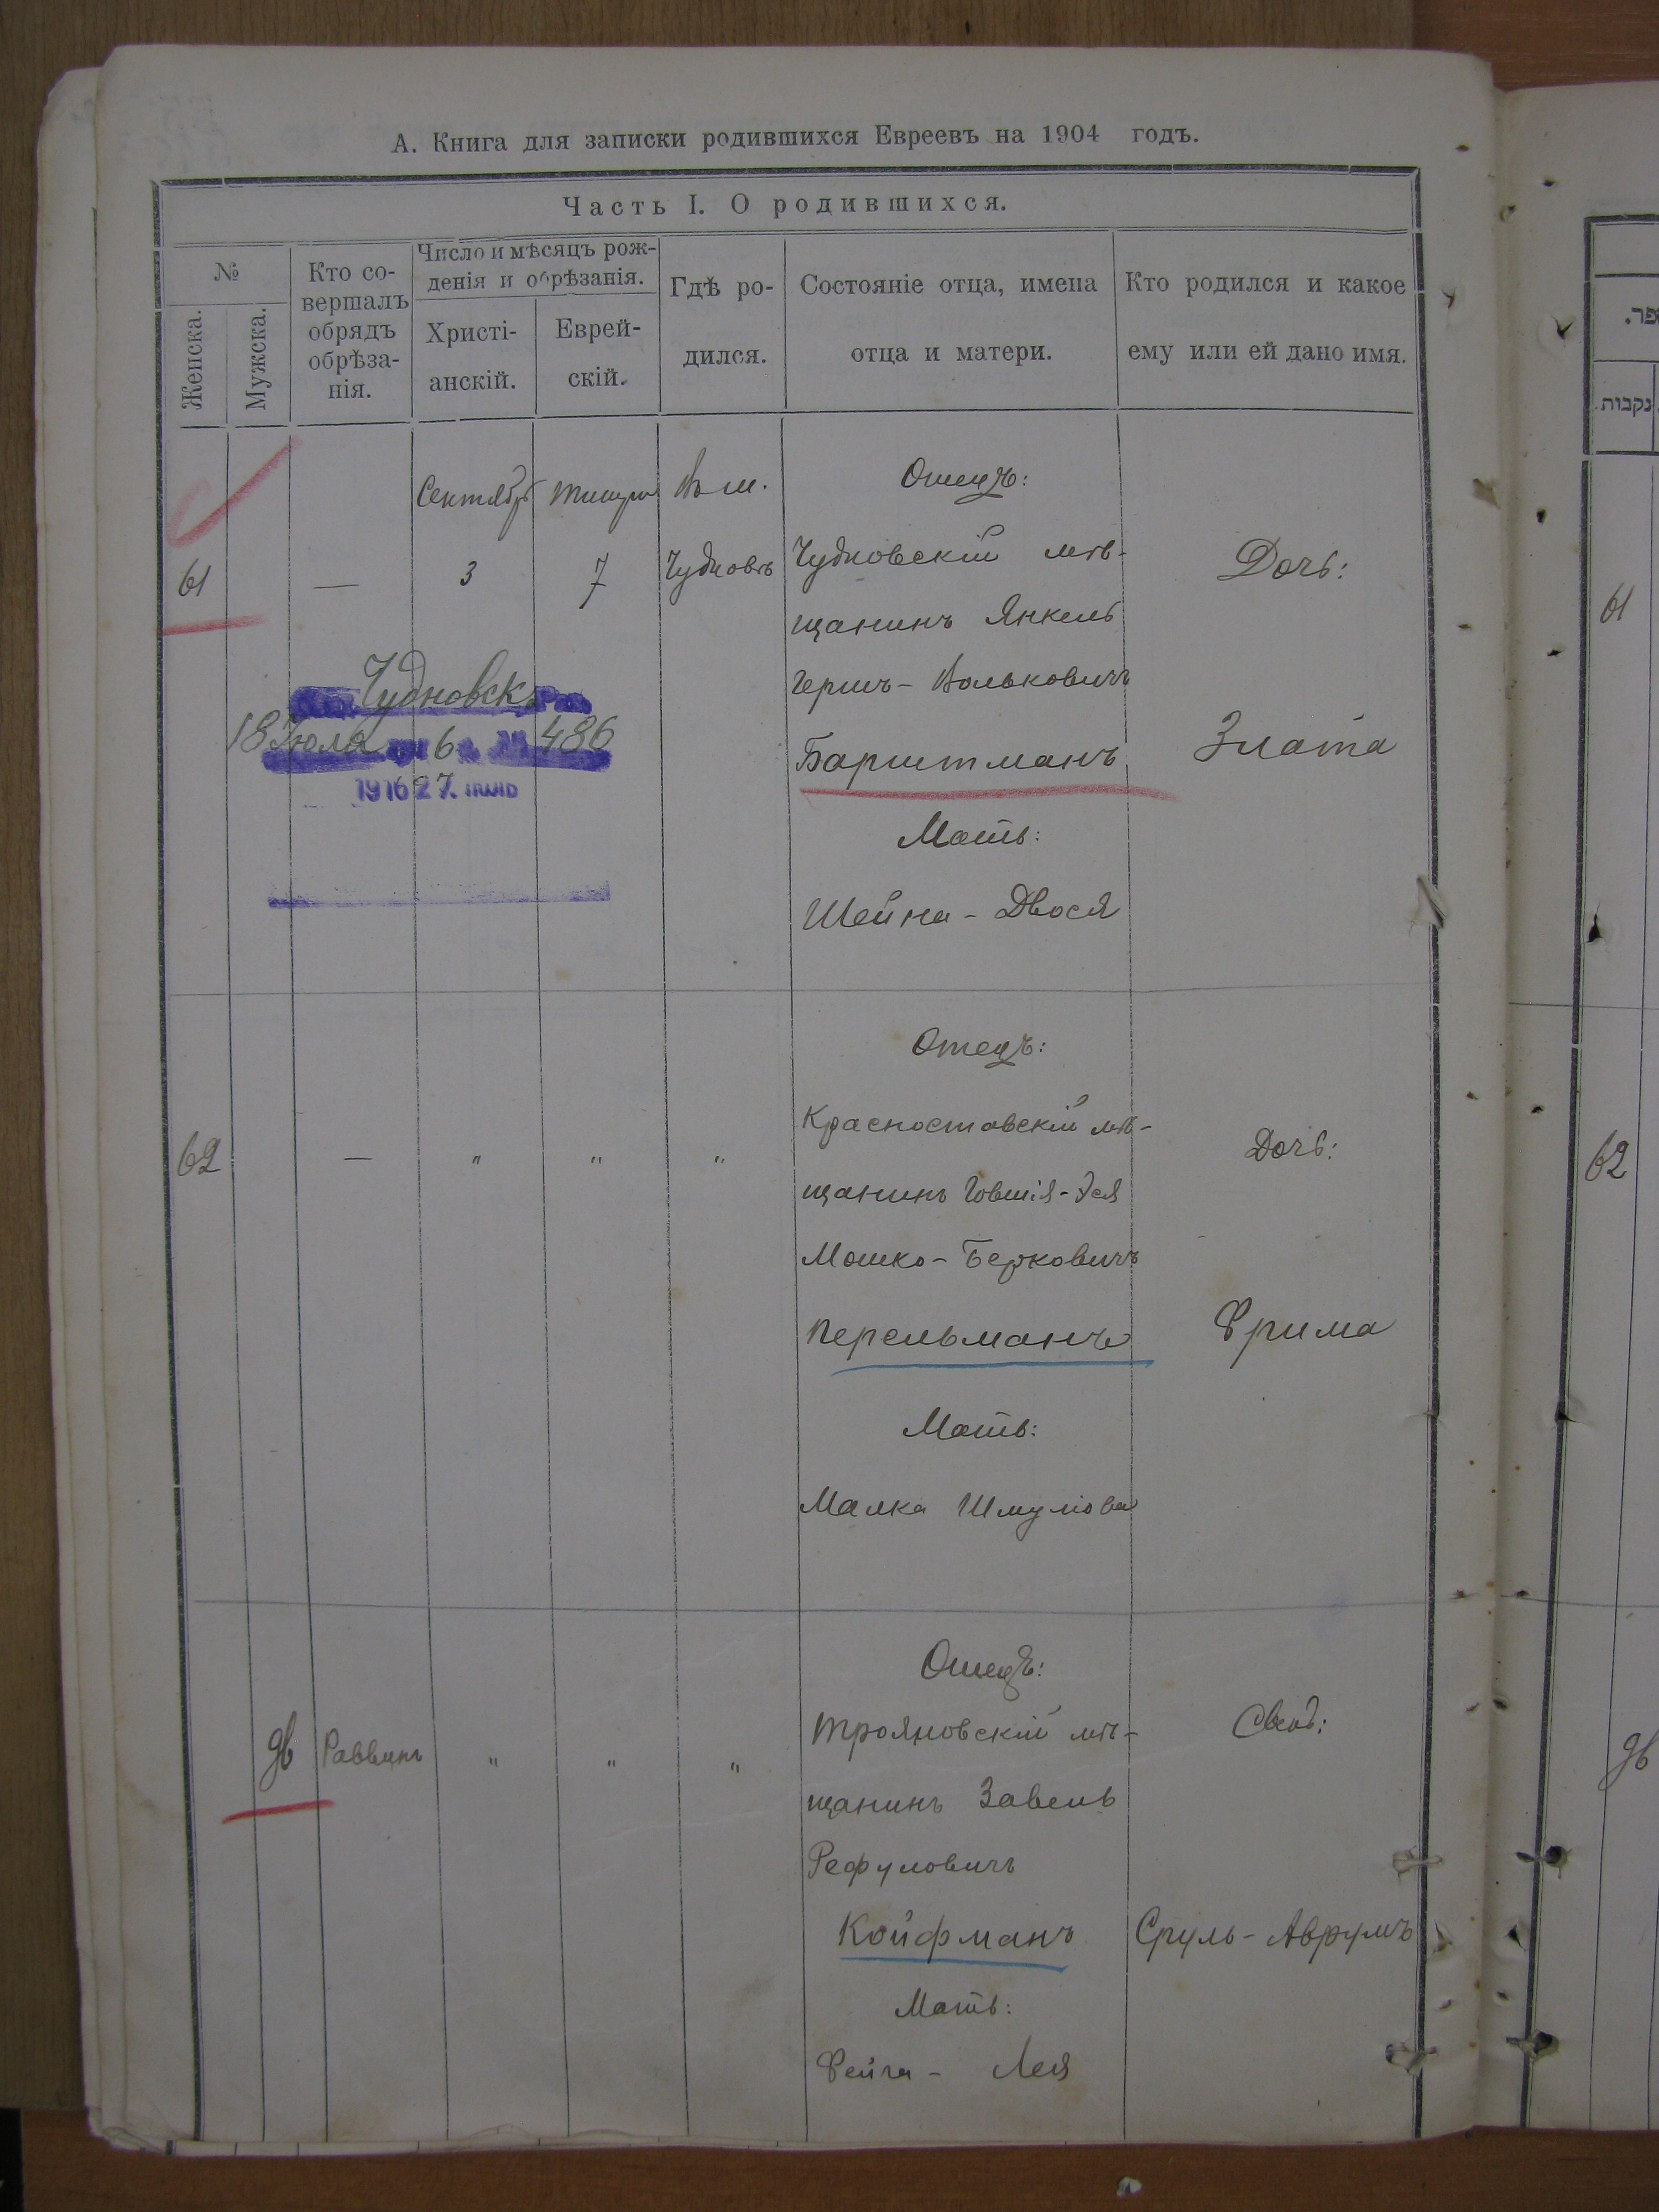 А. Книга для записки родившихся Евреевъ на 1904 годъ.
Часть I. О родившихся.
№
Женска.
Мужска.
Кто со-
вершалъ
обрядъ
обрѣза-
нія.
Число и мѣсяцъ рож-
денія и обрѣзанія.
Христі-
анскій.
Еврей-
скій.
Гдѣ ро-
дился.
Состояніе отца, имена
отца и матери.
Кто родился и какое
ему или ей дано имя.
61
—
Сентябрь
3
Тишри
7
Въ м.
Чудновѣ
Отецъ:
Чудновскій мѣ-
щанинъ Янкель
Гершъ-Вольковичъ
Бариттманъ
Мать:
Шейна-Двося
Дочь:
Злата
Чудновск
18 Июля 6 486
1916 27. июль
62
—
"
"
"
Отецъ:
Красноставскій мѣ-
щанинъ Іовшія-
Мошко-Берковичъ
Перельманъ
Мать:
Малка Шмулова
Дочь:
Фрима
96
Раввинъ
"
"
"
Отецъ:
Трояновскій мѣ-
щанинъ Завель
Рефуловичъ
Койфманъ
Мать:
Фейга- Лея
Сынъ:
Сруль-Аврумъ
נקבות.
61
62
96